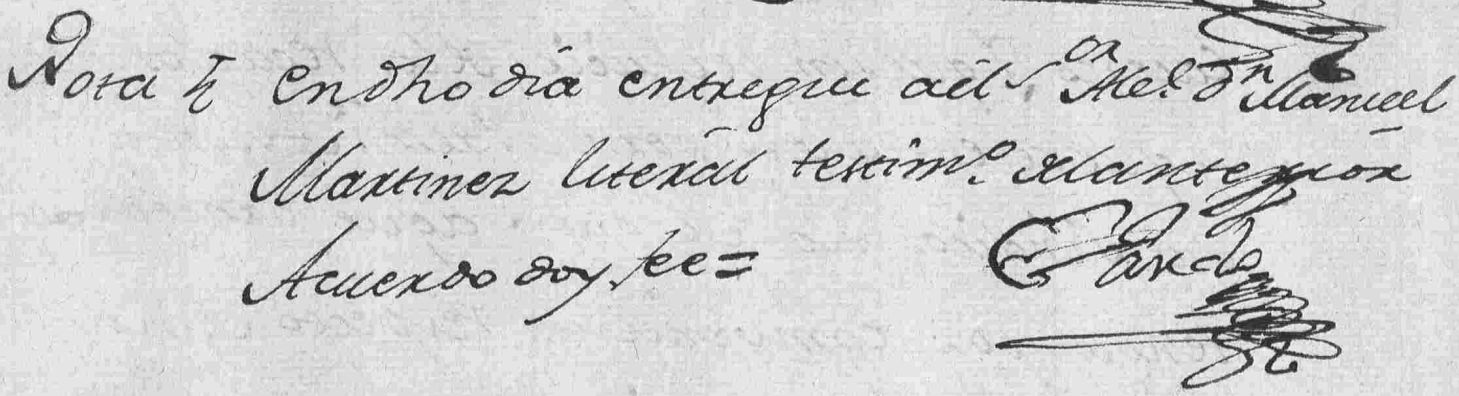 Nota En dho dia entregue aél Sor Alce. Dn Manuel
Martinez literál testimo. del anterior
Acuerdo doy fee =
Pardo